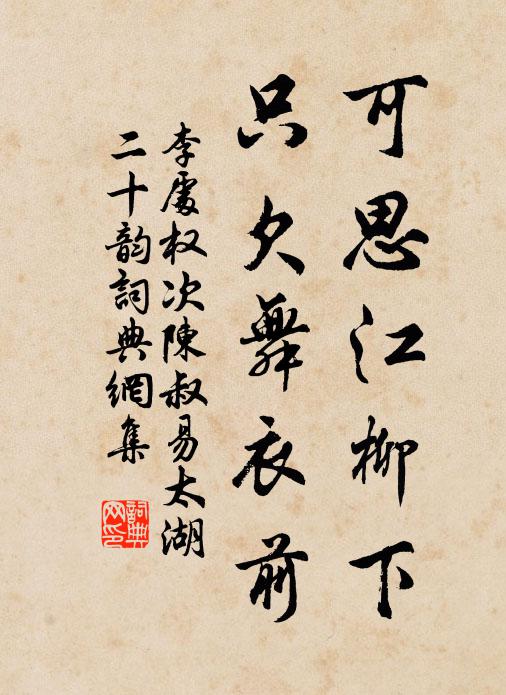 可思江柳下
只欠舞衣前
李處权次陳叔易太湖
二十韵詞典網集
詞典
网印